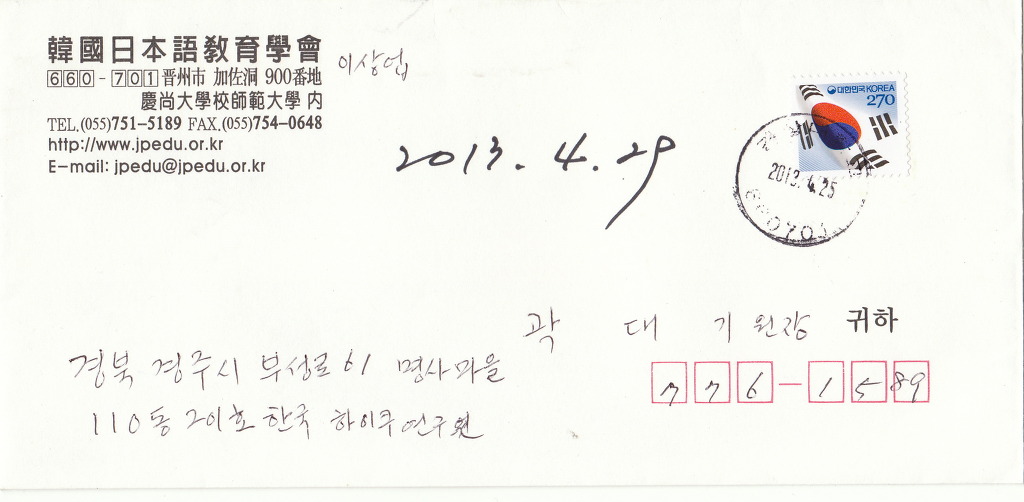 韓國日本語敎育學會
이상업
660-701 晋州市 加佐洞 900番地
慶尚大學校師範大學 內
TEL.(055)751-5189 FAX.(055)754-0648
http://www.jpedu.or.kr
E-mail: jpedu@jpedu.or.kr
2013. 4. 29
대한민국 KOREA
270
2013. 4. 25
660701
곽 대 기 원장 귀하
경북 경주시 부성로 61 명사마을
110동 201호 한국 하이쿠연구원
776-1589